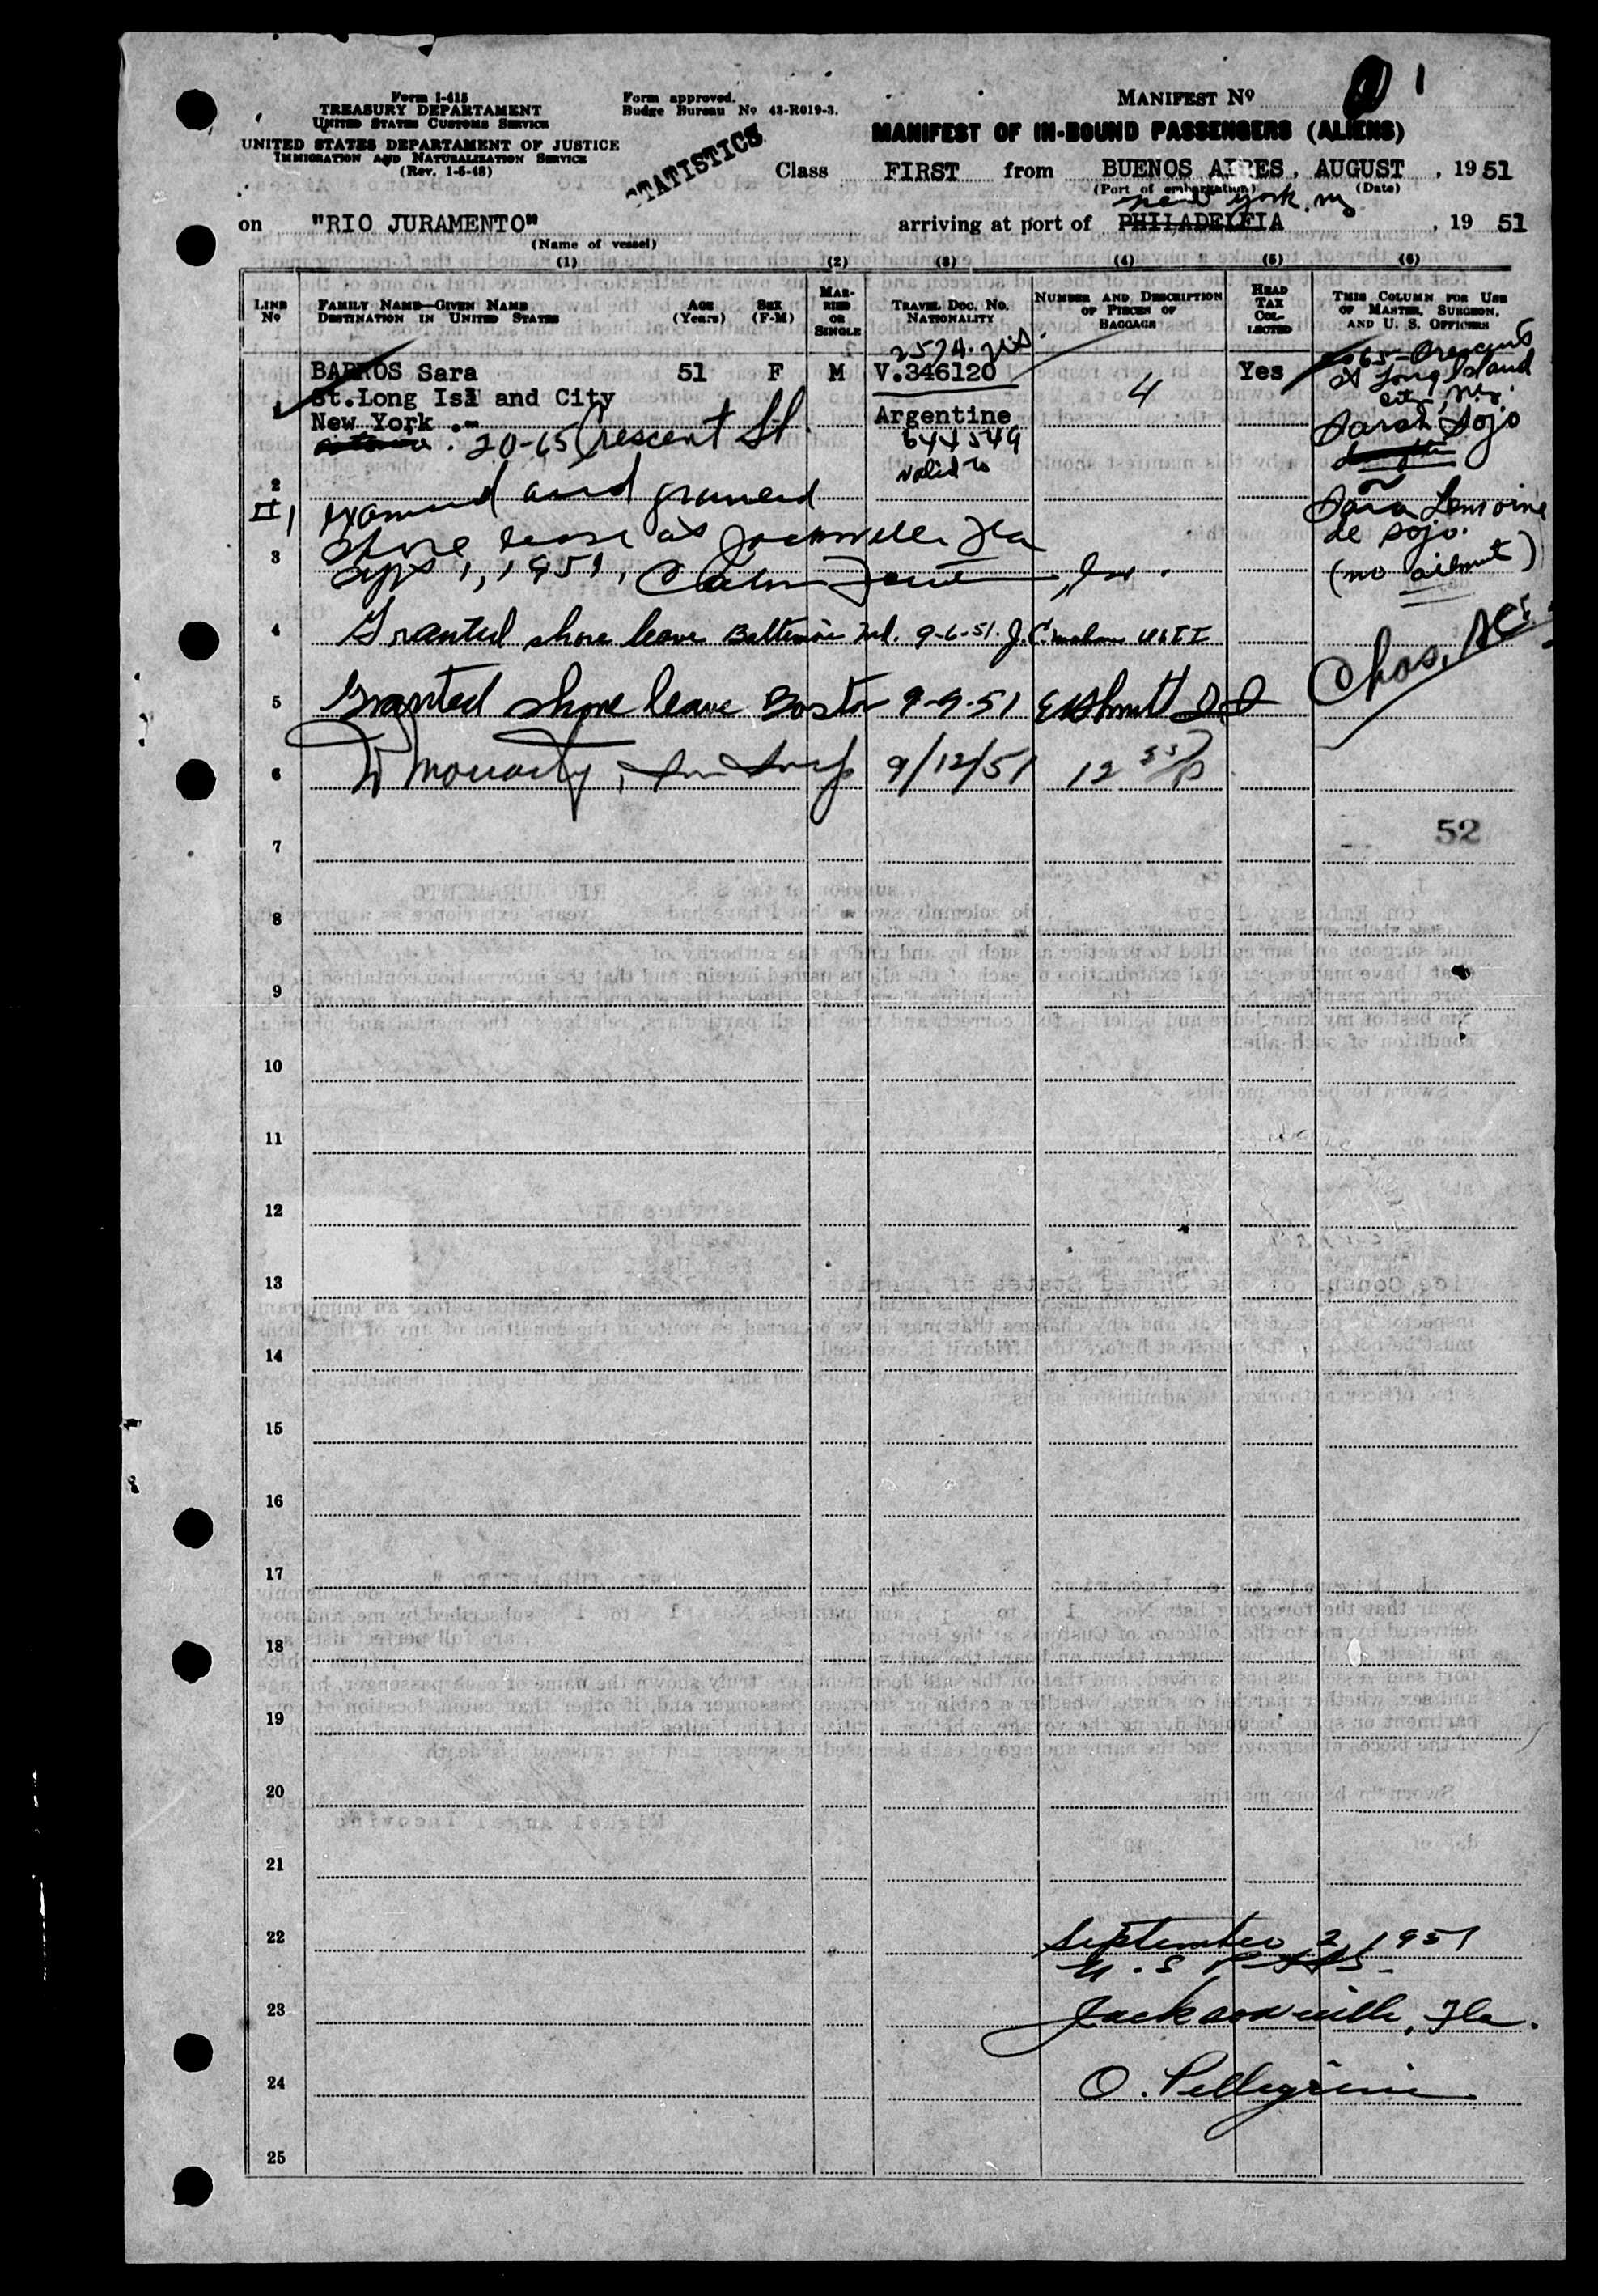 Form I-415
TREASURY DEPARTAMENT
UNITED STATES CUSTOMS SERVICE
UNITED STATES DEPARTAMENT OF JUSTICE
IMMIGRATION AND NATURALIZATION SERVICE
(Rev. 1-5-48)
Form approved.
Budge Bureau Nº 43-R019-3.
STATISTICS
MANIFEST Nº 1
MANIFEST OF IN-BOUND PASSENGERS (ALIENS)
Class FIRST from BUENOS AIRES, AUGUST, 1951
(Port of embarkation) (Date)
New York, NY
on "RIO JURAMENTO" arriving at port of PHILADELFIA, 19 51
(Name of vessel)
(1) (2) (3) (4) (5) (6)
LINE Nº
FAMILY NAME—GIVEN NAME
DESTINATION IN UNITED STATES
AGE (Years)
SEX (F-M)
MARRIED OR SINGLE
TRAVEL DOC. NO.
NATIONALITY
NUMBER AND DESCRIPTION OF PIECES OF BAGGAGE
HEAD TAX COLLECTED
THIS COLUMN FOR USE OF MASTER, SURGEON, AND U. S. OFFICERS
1
BARROS Sara 51 F M V.346120 4 Yes
St.Long Isl and City
New York .-
20-65 Crescent St.
Argentine
644549
Valid to
65-Crescent
St Long Island
City, NY.
Sarah Sojo
or
Sara Lemoine
de Sojo.
(no ailment)
2
examined and granted
3
shore leave at Jacksonville Fla
Sept 1, 1951,
4 Granted shore leave Baltimore Md. 9-6-51. J.C.
Chas.
5 Granted shore leave Boston 9-9-51
6 9/12/51 12
7
52
8
9
10
11
12
13
14
15
16
17
18
19
20
21
22
September 2, 1951
U.S.P.H.S.-
23
Jacksonville, Fla.
24
O. Pellegrini
25